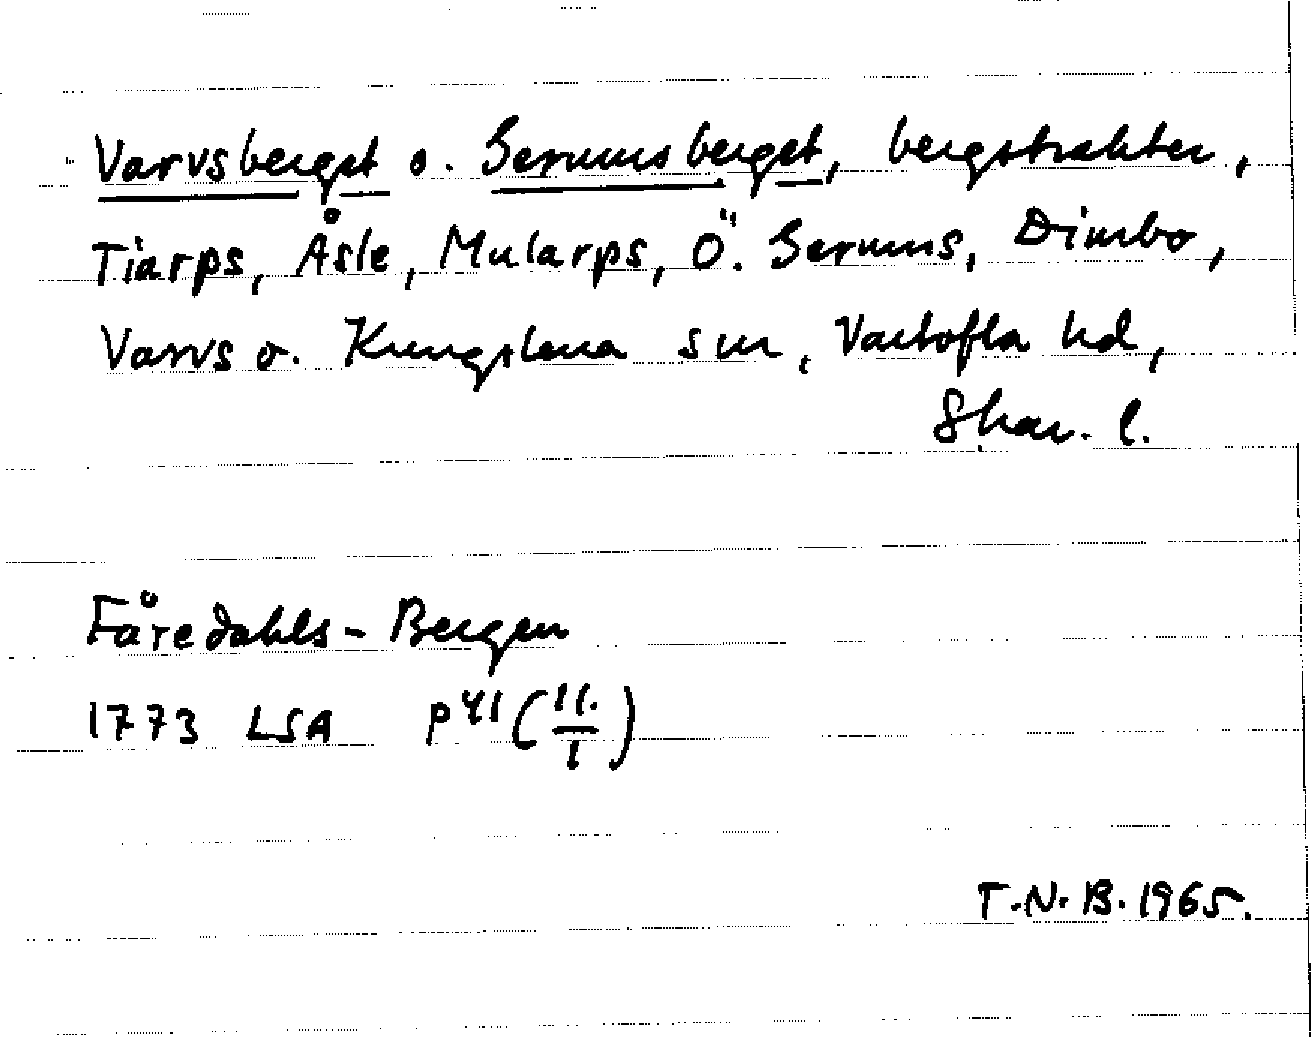 Varvsberget o. Gerumsberget, bergstrakter,
Tiarps, Åsle, Mularps, Ö. Gerums, Dimbo,
Varvs o. Kungslena snr, Vartofta hd,
Skar. l.
Fåredahls-Bergen
1773 LSA P41 (11./1)
T.N.B. 1965.